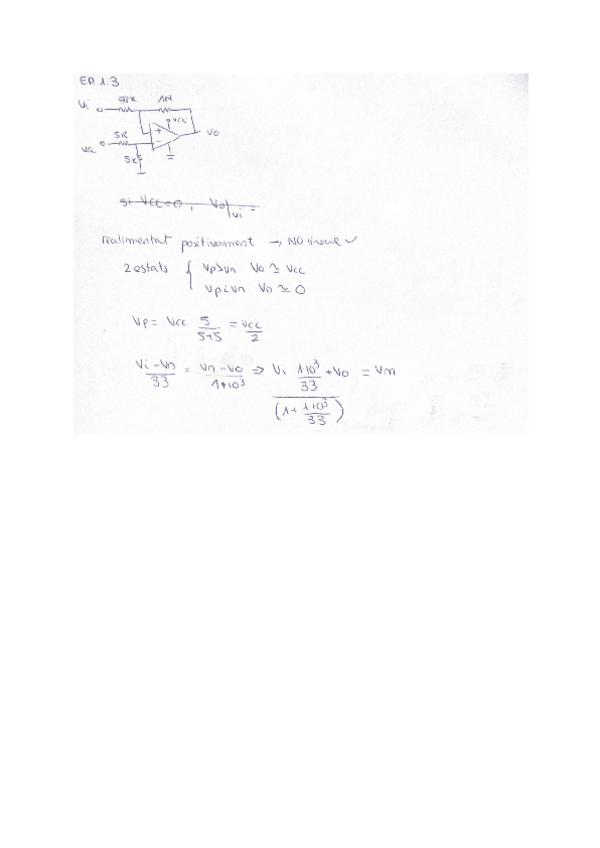 ER 1.3
33K 1M
Vi
+VCC
+
-
Vo
5K
Vcc
5K
si Vcc=0, Vo/Vi =
realimentat positivament → NO lineal ✓
2 estats { Vp>Vn Vo ≃ Vcc
Vp<Vn Vo ≃ 0
Vp = Vcc 5/(5+5) = Vcc/2
(Vi-Vn)/33 = (Vn-Vo)/1*10³ ⇒ (Vi 1·10³/33 + Vo)/(1+ 1·10³/33) = Vn